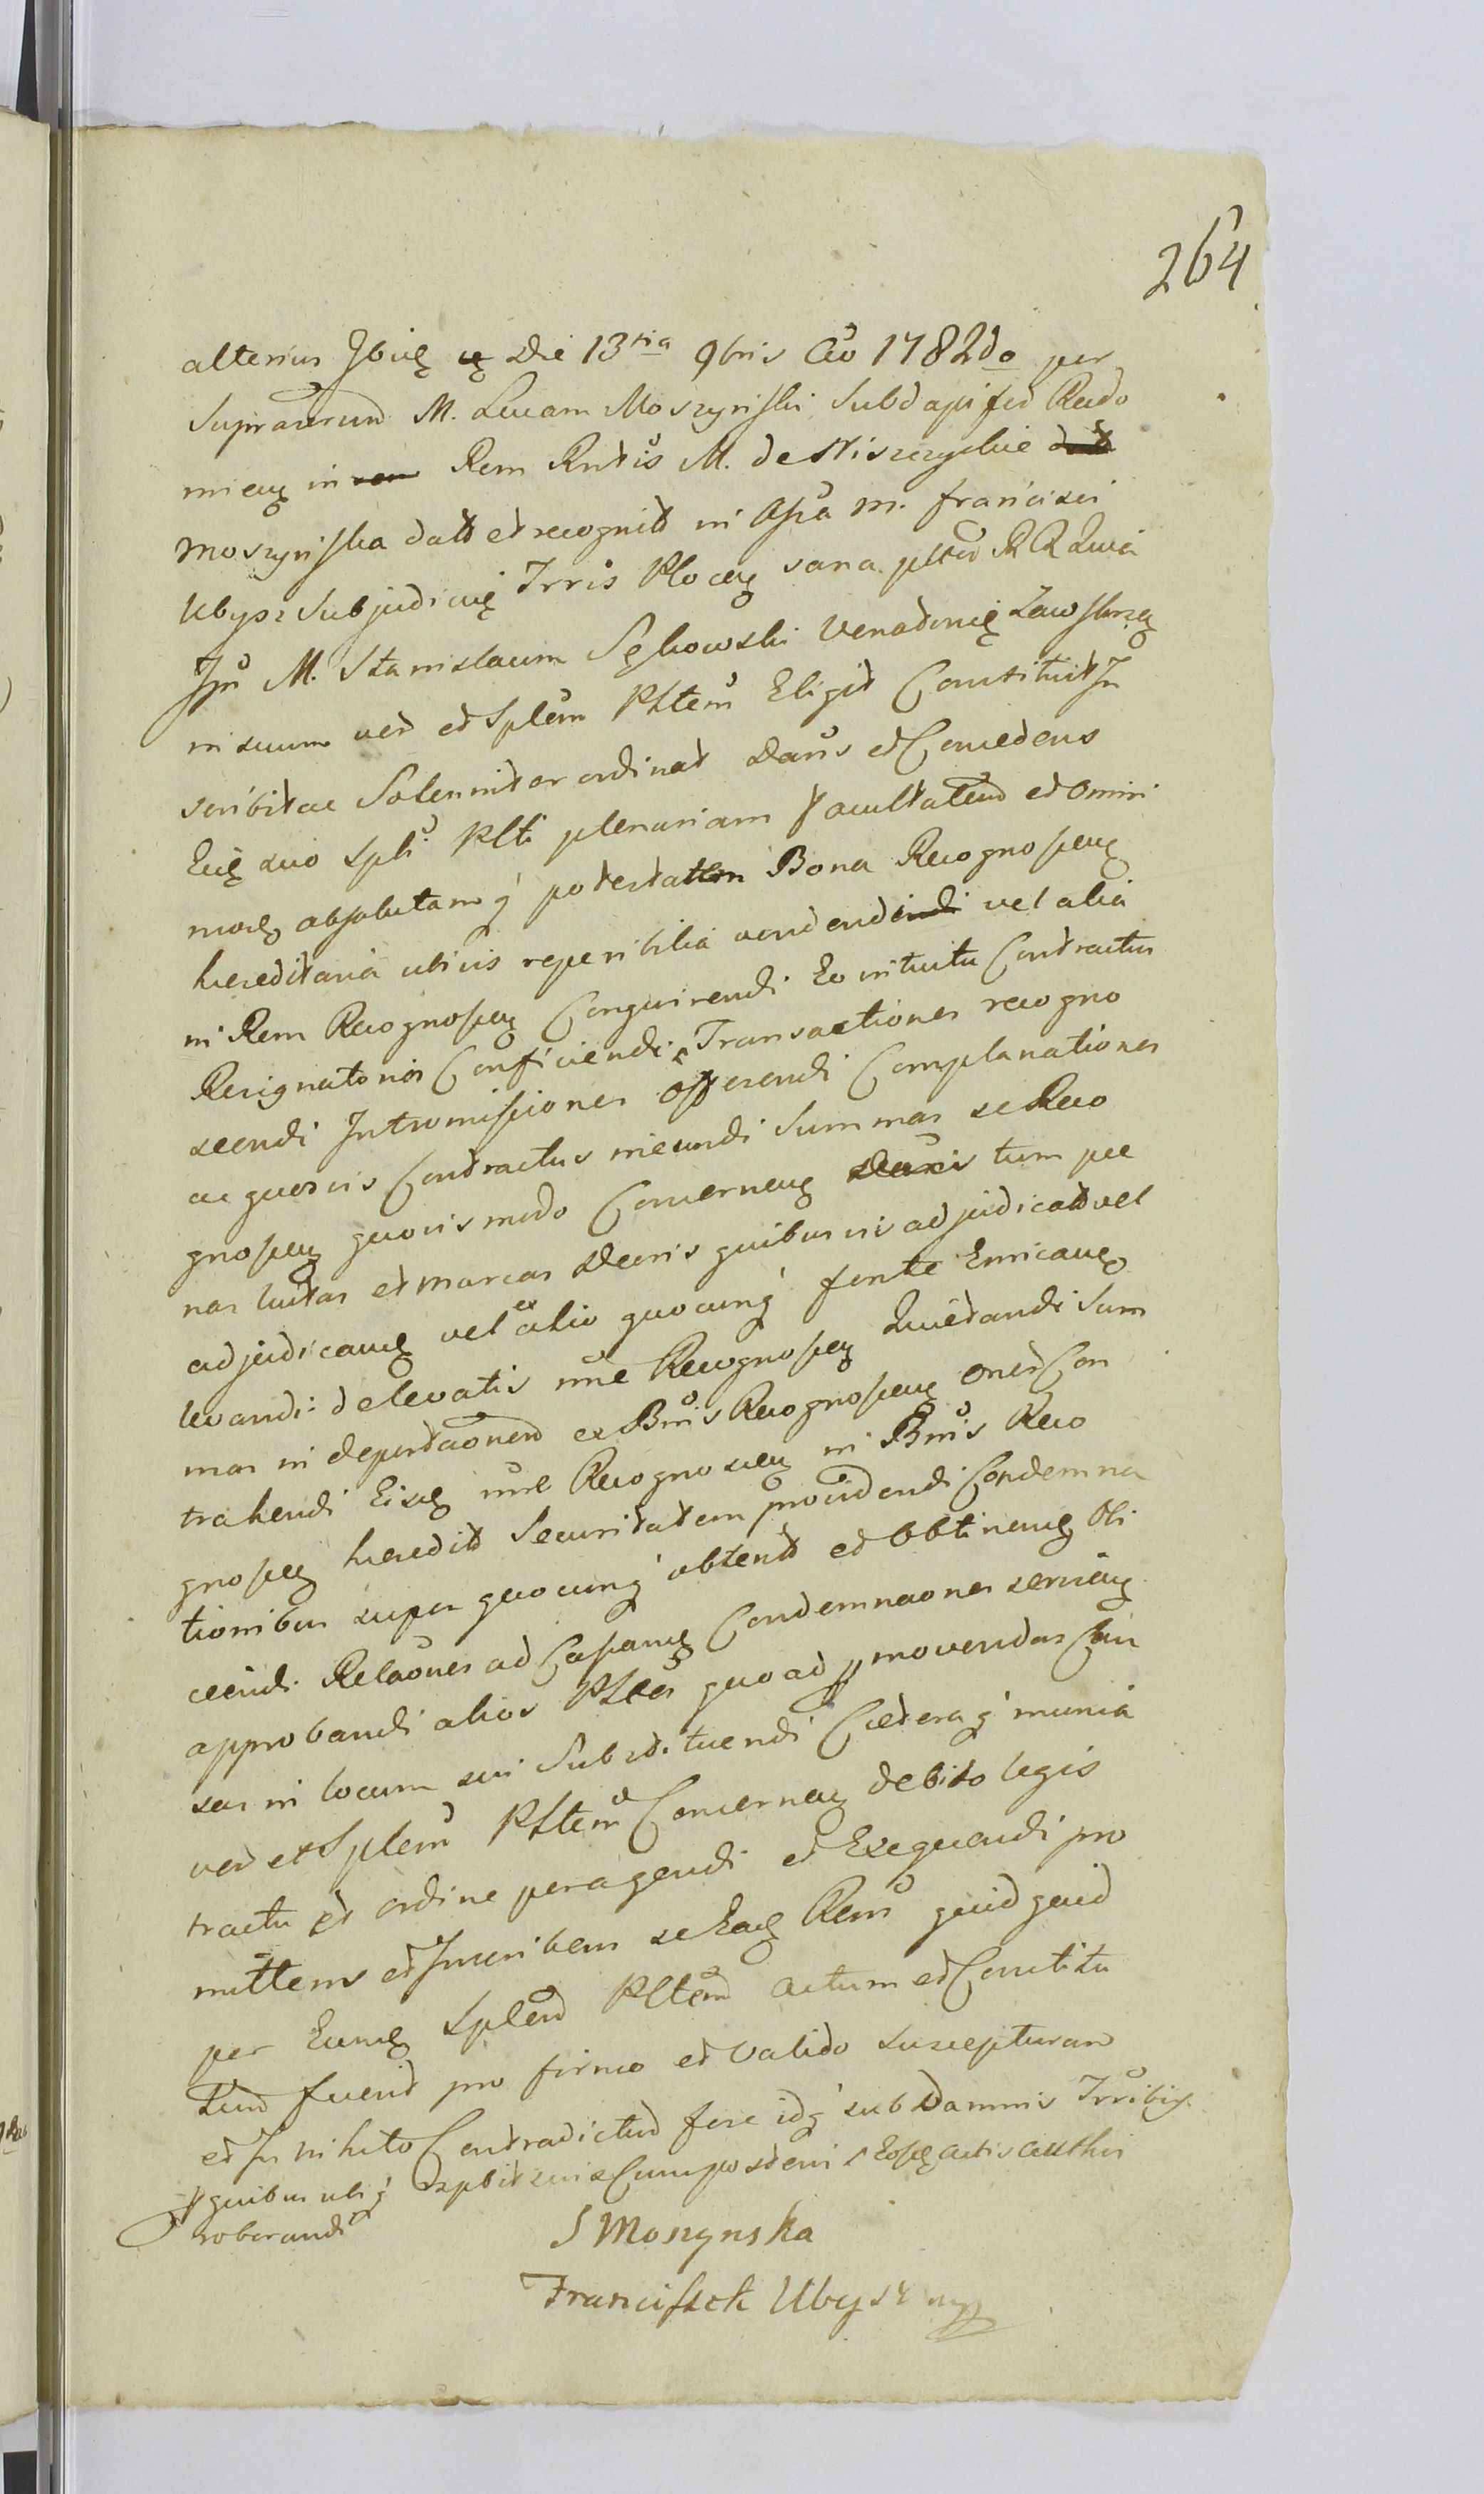 264
alterius Ibidę Die 13tia 9bris Ao 1782do per
Supratum M. Lucam Moszynski Subdapiferd Rado
mieņ in Rem Rndis M. de Niszczyckie
Moszynska datt et recognitt in Asza M. Francisci
Ubysz Subjudicuę Trris Plocen sana pltrd RR Quia
Ipn M. Stanislaum Sękowski Venatorię Zawskrzę
in suum ver et Splem Pltem Eligit Constituit In
scribit ac Solennit er ordinat Dans et Concedens
Eidę suo Spli Plti plenariam facultatem et omni
mode absolutam q potestatem Bona Recognoscen
hereditaria ubivis reperibilia vendend vel alia
in Rem Recognoscen Conquirendi Eo intuitu Contractus
Resignatorios Conficiendi Transactiones recogno
scendi Intromissiones offerendi Complanationes
ac quosvis Contractus ineundi Summas se Reco
gnoscen quovis modo Concernen tum pœ
nas luitas et marcas Decris quibusvis adjudicatt vel
adjudicand vel ex alio quocunq fonte Emicand
levandi: de levatis nne Recognoscen Quietandi Sum
mas in deputaonem ex Bnis Recognoscen oner Con
trahendi Eisdę nne Recognoscen in Bnis Reco
gnoscen heredit Securitatem providendi Condemna
tionibus super quocunq obtentt et obtinend Obi
ciendi Relaones ad Cassand Condemnaones servien
approbandi alios Pltes quoad pmovendas Cau
sas in locum sui Substituendi Cætera q munia
ver et Splem Pltem Concernen debito legis
tractu et ordine peragendi et Exequendi pro
mittens et Inscribens se Eadę Rem quid quid
per Eundę Splem Pltem actum et Constitu
tum fuerit pro firmo et valido suscepturam
et In nihilo Contradicturd fore idq sub Damnis Trribus
pquibus ubiq
roborandi
S Moszynska
Franciszek Ubysz mp